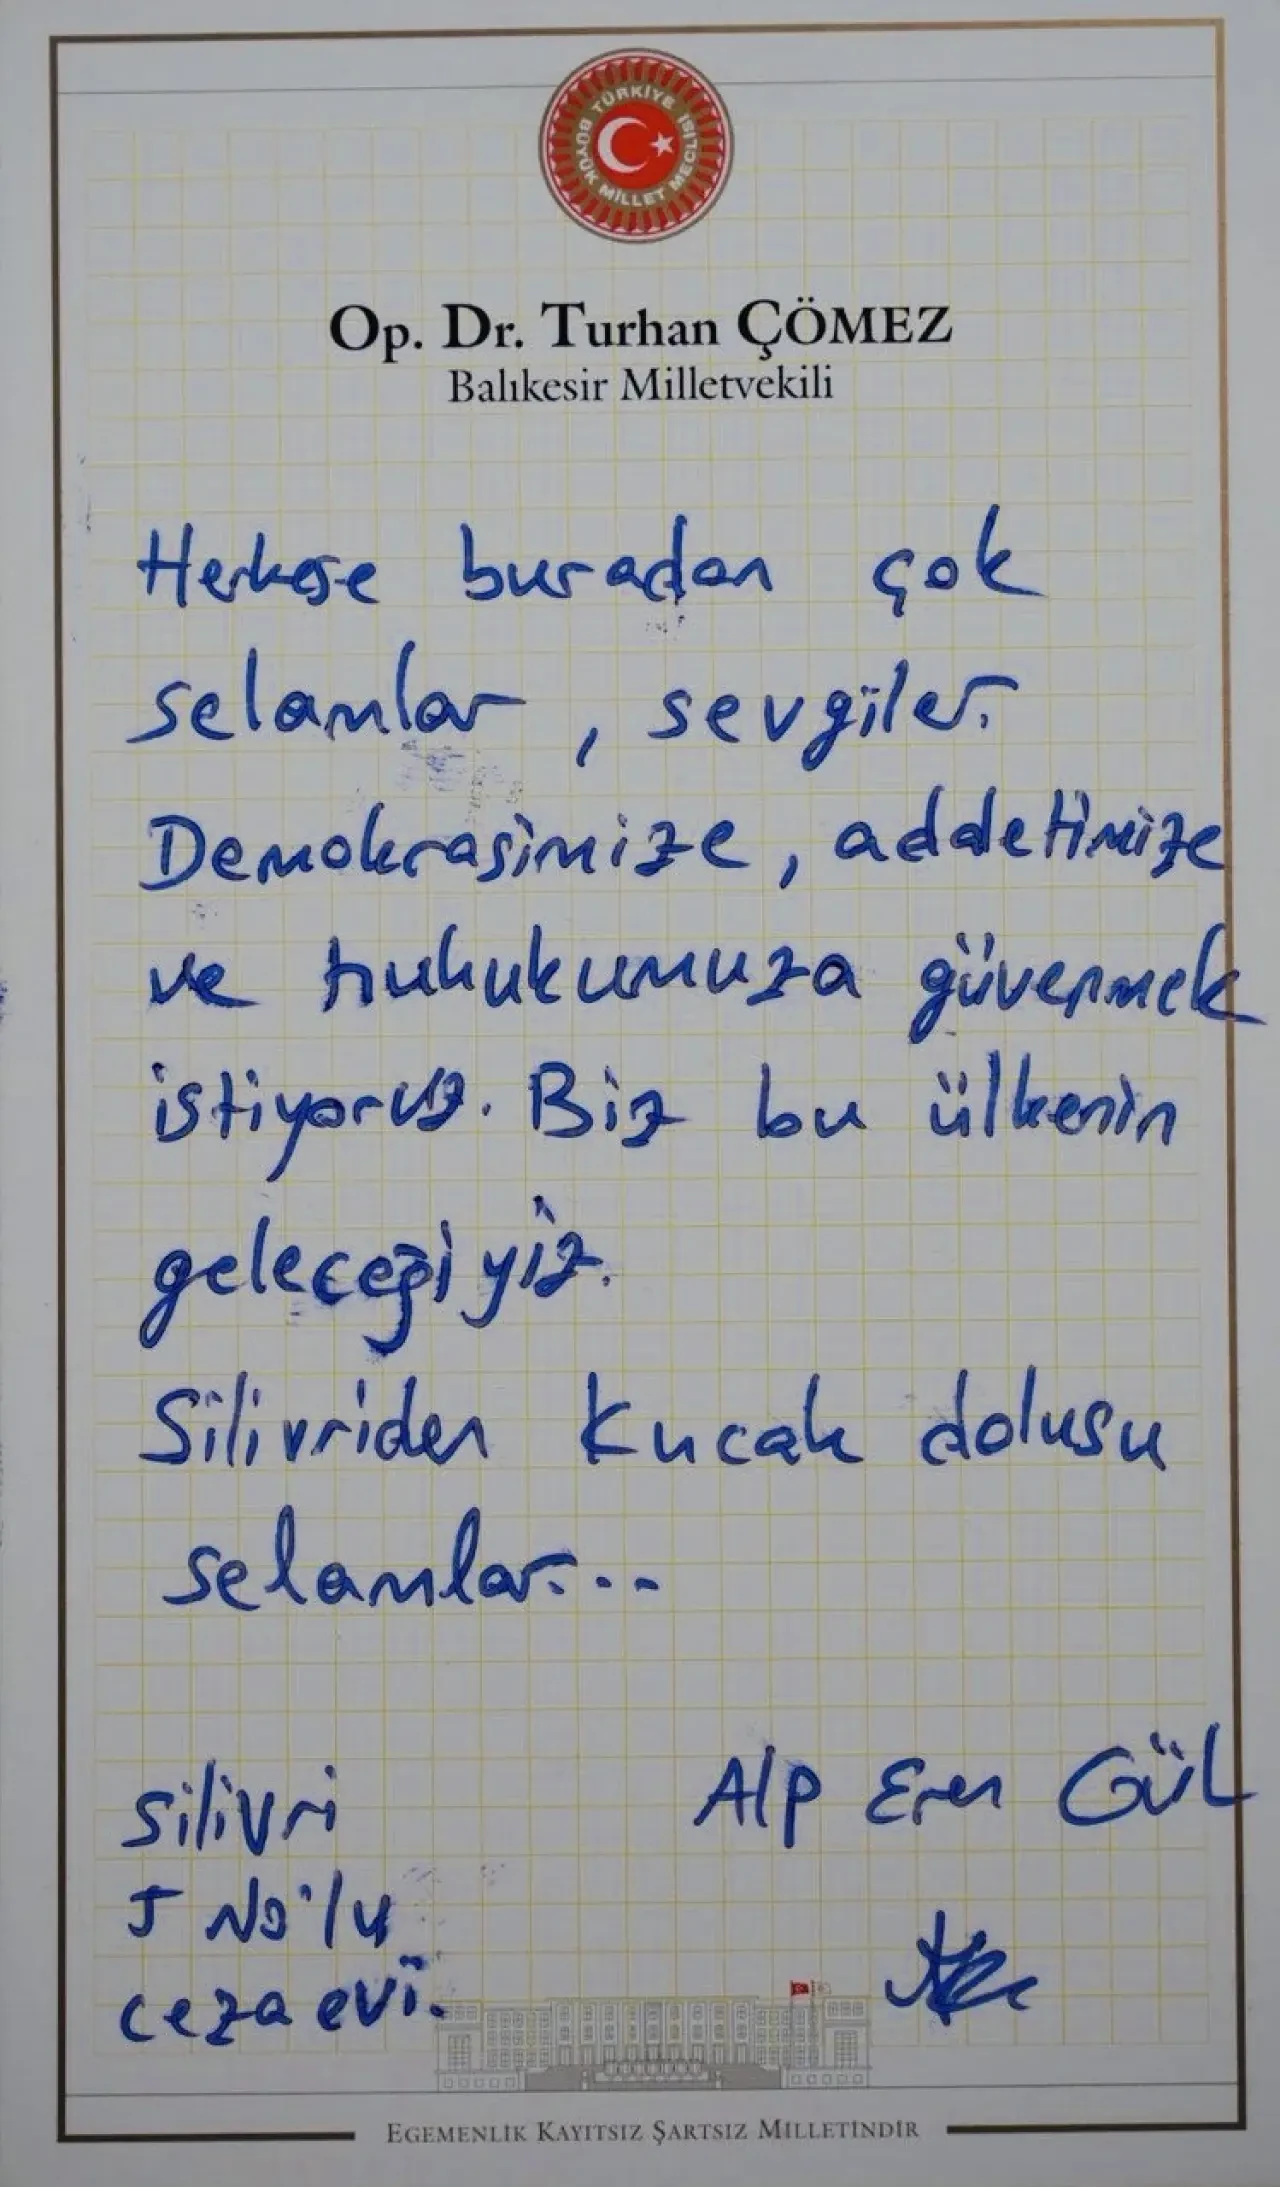 TÜRKİYE BÜYÜK MİLLET MECLİSİ
Op. Dr. Turhan ÇÖMEZ
Balıkesir Milletvekili
Herkese buradan çok
selamlar, sevgiler.
Demokrasimize, addetimize
ve hukukumuza güvenmek
istiyoruz. Biz bu ülkenin
geleceğiyiz.
Silivriden kucak dolusu
selamlar...
Alp Eren Gül
Silivri
5 No'lu
cezaevi.
EGEMENLİK KAYITSIZ ŞARTSIZ MİLLETİNDİR